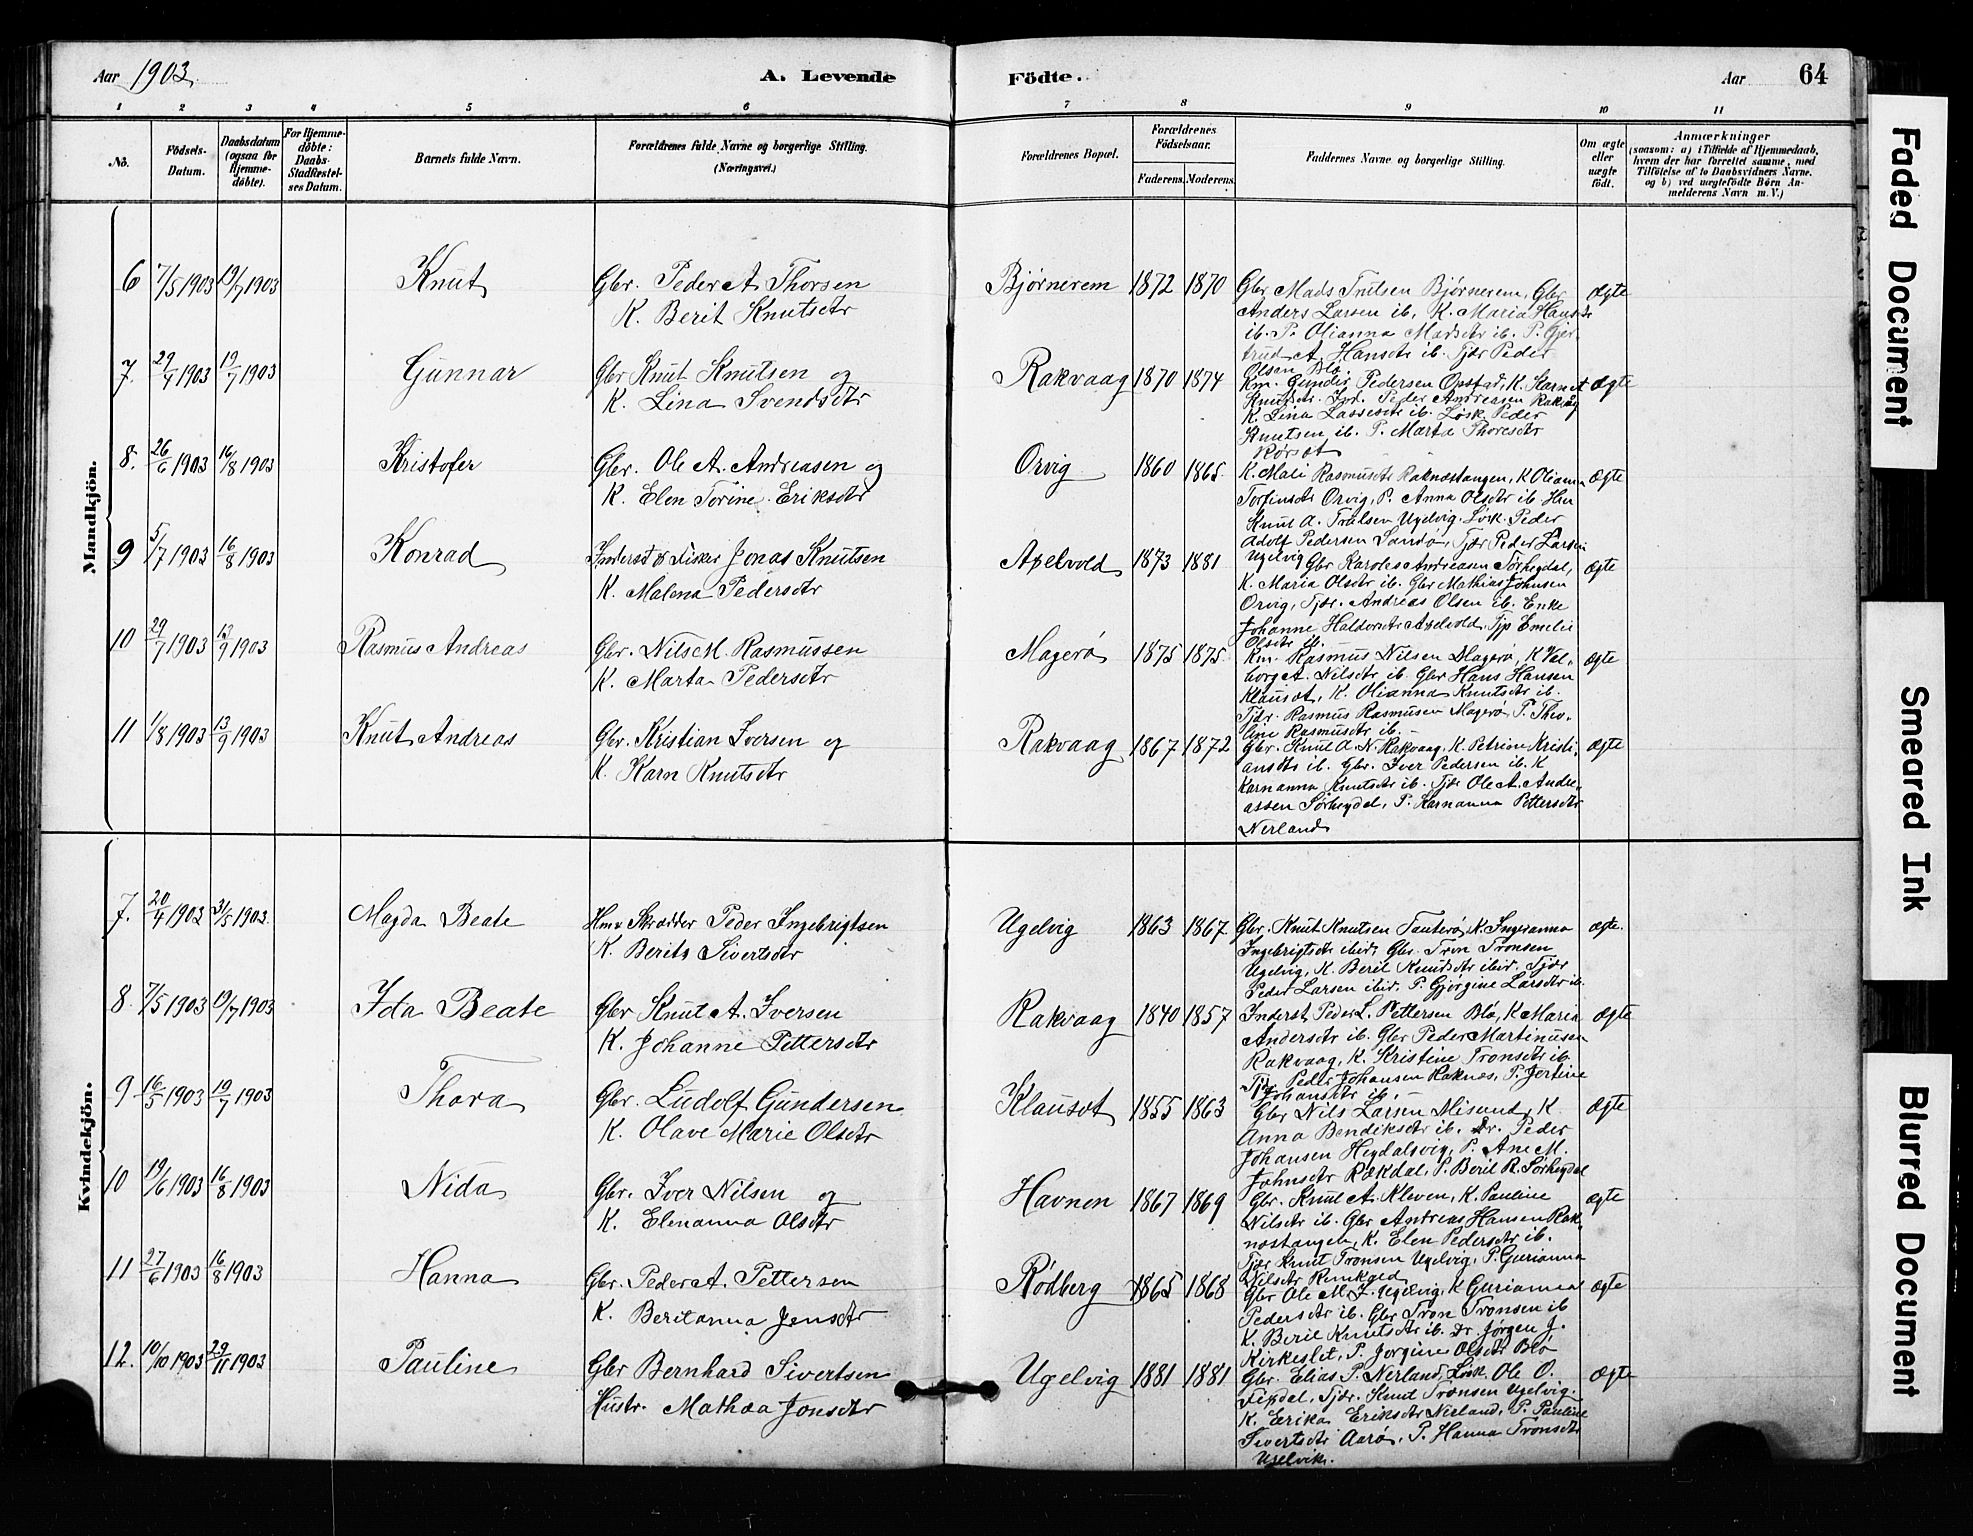 Aar 1903.
A. Levende
Födte.
Aar
64
1 2 3 4 5 6 7 8 9 10 11
No.
Födsels-Datum.
Daabsdatum (ogsaa for Hjemme-döbte).
For Hjemme-döbte: Daabs-Stadfæstel-ses Datum.
Barnets fulde Navn.
Forældrenes fulde Navne og borgerlige Stilling. (Næringsvei.)
Forældrenes Bopæl.
Forældrenes Födselsaar.
Faderens. Moderens.
Faddernes Navne og borgerlige Stilling.
Om ægte eller uægte födt.
Anmærkninger
(saasom: a) i Tilfælde af Hjemmedaab, hvem der har forrettet samme, med Tilföielse af to Daabsvidners Navne. og b) ved uægtefödte Børn An-melderens Navn m. V.)
Mandkjön.
6 7/5 1903 19/7 1903 Knut
Gbr. Peder A Thorsen
K. Berit Knutsdtr
Bjørnerem 1872 1870
Gbr Mads Trulsen Bjørnerem, Gbr
Anders Larsen ib, K. Maria Hansdr
ib. P. Olianna Madsdtr ib. P. Gjer-
trud A. Hansdtr ib. Tjdr Peder
Olsen Blø
Ægte
7. 29/4 1903 19/7 1903 Gunnar
Gbr Knut Knutsen og
K. Lina Svendsdtr
Rakvaag 1870 1874
Km. Gunder Pedersen Opstad, K.
Peder Andreasen Rakvåg
K. Lina Lassesdtr ib. Løsk. Peder
Knutsen ib. P. Marta Thoresdtr
Rørset
Ægte
8. 26/6 1903 16/8 1903 Kristofer
Gbr. Ole A. Andreasen og
K. Elen Torine Eriksdtr
Orvig 1860 1865.
K. Mali Rasmusdtr Raknestangen, K Olianna
Torfinsdtr Orvig, P. Anna Olsdtr ib.
Knut A. Trulsen Ugelvig. Løsk. Peder
Adolf Pedersen Sandø, Tjdr Peder Larsen
Ugelvig
Ægte
9 5/7 1903 16/8 1903 Konrad
Inderst og Fisker Jonas Knutsen
K. Malena Pedersdtr
Axelvold 1873 1881
Gbr Karoles Andreasen Sørheydal,
K. Maria Olsdtr ib. Gbr Mathias Johnsen
Orvig, Tjdr. Andreas Olsen ib. Enke
Johanne Haldorsdtr Axelvold, Tjp Emelie
Olsdtr ib.
Ægte
10 29/7 1903 13/9 1903 Rasmus Andreas
Gbr. Nils M. Rasmussen
K. Marta Pedersdtr
Magerø 1875 1875.
Km. Rasmus Nilsen Magerø, K Val-
borg A. Nilsdtr ib. Gbr Hans Hansen
Klauset, K. Olianna Knutsdtr ib.
Tjdr. Rasmus Rasmusen Magerø P. Theo-
line Rasmusdtr ib.
Ægte
11 1/8 1903 13/9 1903 Knut Andreas
Gbr. Kristian Iversen og
K. Karn Knutsdtr
Rakvaag 1867 1872
Gbr. Knut A. N. Rakvaag, K. Petrine Kristi-
ansdtr ib. Gbr. Iver Pedersen ib. K
Karnanna Knutsdtr ib. Tjdr Ole A. Andre-
assen Sørheydal, P. Karnanna Pettersdtr
Nerland
Ægte
Kvindekjön.
7. 20/4 1903 31/5 1903. Magda Beate
Hmd Skrædder Peder Ingebrigtsen
K. Berits Sivertsdtr
Ugelvig 1863 1867.
Gbr. Knut Knutsen Tauterø, K. Ingeranna
Ingebrigtsdtr ibid, Gbr. Tron Tronsen
Ugelvig, K. Beril Knudsdtr ibid. Tjdr
Peder Larsen ibid, P. Gjørgine Larsdtr ib.
Ægte.
8. 7/5 1903 19/7 1903 Ida Beate
Gbr Knut A. Iversen
K. Johanne Pettersdtr
Rakvaag 1840 1857
Inderst Peder L. Pettersen Blø, K Maria
Andersdtr ib. Gbr Peder Martinusen
Rakvaag, K. Kristine Tronsdtr ib.
Tjdr Peder Johansen Raknes, P. Jertine
Johansdtr ib.
Ægte
9 16/5 1903 19/7 1903 Thora
Gbr. Ludolf Gundersen
K. Olave Marie Olsdtr
Klauset 1855 1863
Gbr Nils Larsen Misund, K.
Anna Bendiksdtr ib. Dr. Peder
Johansen Heydalsvig, P. Ane M.
Johnsdtr Rakdal, P. Beril R. Sørheydal
Ægte
10 19/6 1903 16/8 1903 Nida
Gbr. Iver Nilsen og
K. Elenanna Olsdtr
Havnen 1867 1869
Gbr. Knut A. Kleven, K. Pauline
Nilsdtr ib. Gbr Andreas Hansen Rak-
nestangen, K. Elen Pedersdtr ib.
Tjdr Knut Tronsen Ugelvig, P. Gurianna
Nilsdtr
Ægte
11 27/6 1903 16/8 1903 Hanna
Gbr. Peder A. Pettersen
K. Beritanna Jensdtr
Rødberg 1865 1868
Gbr Ole M. J. Ugelvig, K Gurianna
Pedersdtr ib. Gbr Tron Tronsen ib
K. Beril Knutsdtr ib. Dr. Jørgen J.
Kirkeslet, P. Jorgine Olsdtr Blø
Ægte
12. 10/10 1903 29/11 1903 Pauline
Gbr Bernhard Sivertsen
Hustr. Mathea Jonsdtr
Ugelvig 1881 1881
Gbr. Elias P. Nerland, Løsk. Ole O.
Tjdr. Knut Tronsen Ugelvig.
K. Erika Eriksdtr Nerland, P. Pauline
Sivertsdtr Aarø, P. Hanna Tronsdtr
Ugelvik.
Ægte
Faded Document
Smeared Ink
Blurred Document